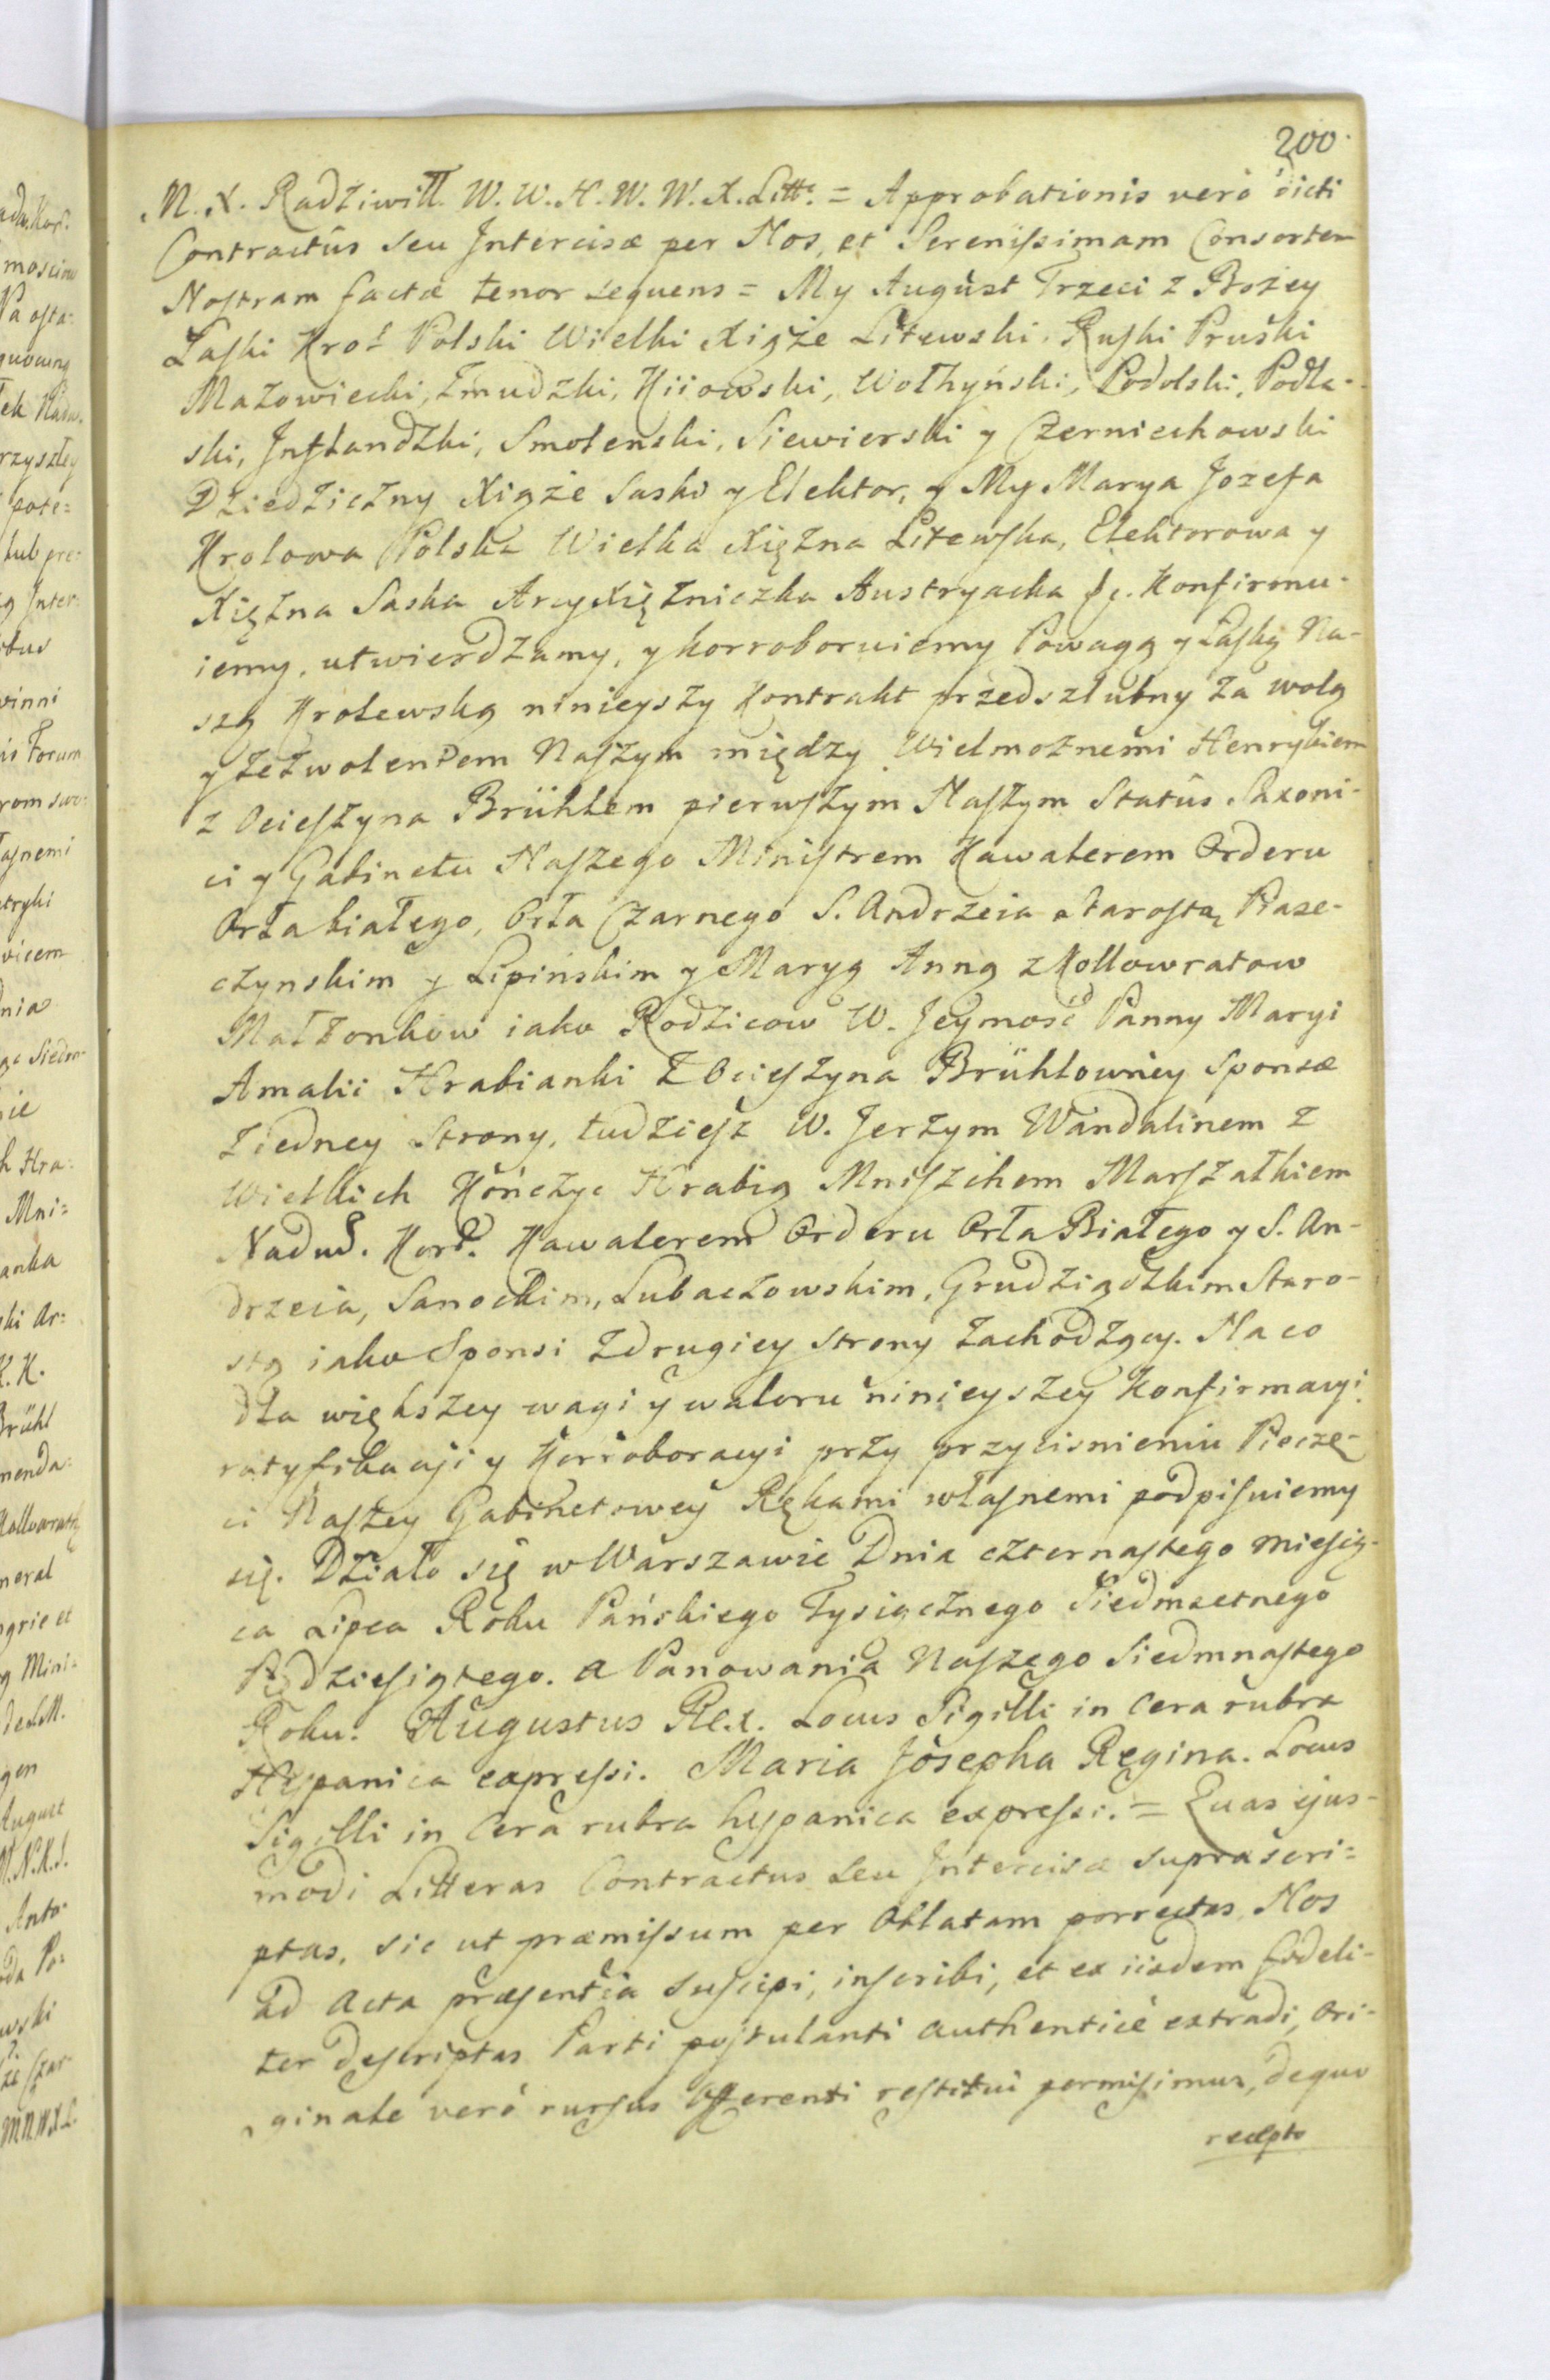 200.
M. X. Radziwiłł. W. W. H. W. W. X. Litt: = Approbationis verò dicti
Contractûs seu Intercisæ per Nos, et Serenissimam Consortem
Nostram factæ tenor sequens = My August Trzeci z Bożey
Łaski Kroł Polski Wielki Xiąże Litewski, Ruski Pruski
Mazowiecki, Żmudzki, Kiiowski, Wołhyński, Podolski, Podla-
ski, Inflandzki, Smolenski, Siewierski y Czerniechowski
Dziedziczny Xiąże Saski y Elektor, y My Marya Jozefa
Krolowa Polska Wielka Xiężna Litewska, Elektorowa y
Xiężna Saska ArcyXiężniczka Austryacka &c. Konfirmu-
iemy, utwierdzamy, y korroboruiemy Powagą y Łaską Na-
szą Krolewską ninieyszy Kontrakt przedszlubny za wolą
y zezwoleniem Naszym między Wielmożnemi Henrykiem
z Ocieszyna Brühlem pierwszym Naszym Statûs Saxoni-
ci y Gabinetu Naszego Ministrem Kawalerem Orderu
Orła białego, Orła Czarnego S. Andrzeia Starostą Piase-
czynskim y Lipińskim y Maryą Anną z Kollowratow
Małżonkow iako Rodzicow W. Jeymość Panny Maryi
Amalii Hrabianki z Ocieszyna Brühlowney Sponsæ
z iedney Strony, tudziesz W. Jerzym Wandalinem z
Wielkich Kończyc Hrabią Mniszchem Marszałkiem
Nadw. Kor. Kawalerem Orderu Orła Białego y S. An-
drzeia, Sanockim, Lubaczowskim, Grudziądzkim Staro-
stą iako Sponsi z drugiey strony zachodzący. Na co
dla większey wagi y waloru ninieyszey Konfirmacyi
ratyfikacyi y Korroboracyi przy przycisnieniu Pieczę-
ci Naszey Gabinetowey Rękami własnemi podpisuiemy
się. Działo się w Warszawie Dnia czternastego miesią-
ca Lipca Roku Pańskiego Tysiącznego Siedmsetnego
Pędziesiątego. a Panowania Naszego Siedmnastego
Roku. Augustus Rex. Locus Sigilli in Cera rubra
Hispanica expressi. Maria Josepha Regina. Locus
Sigilli in Cera rubra hispanica expressi. = Quas ejus-
modi Litteras Contractus seu Intercisæ suprascri=
ptas, sic ut præmissum per Oblatam porrectas Nos
ad Acta præsentia suscipi, inscribi, et ex iisdem fideli-
ter descriptas Parti postulanti authenticè extradi, Ori-
ginale verò rursus Offerenti restitui permisimus, de quo
recepto